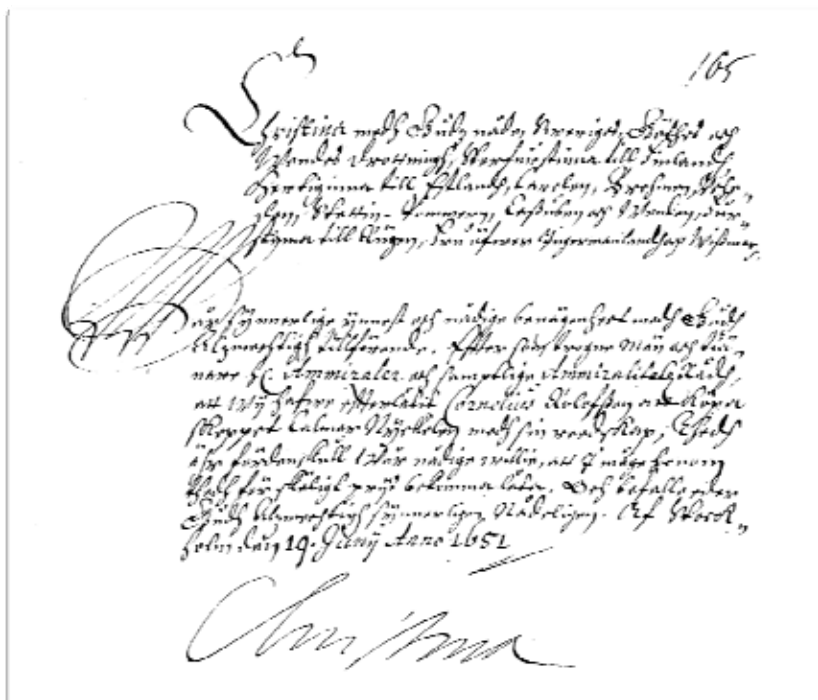 165
Christina medh Gudz nåde, Sweriges, Göthes och
Wendes Drottningh, Storfurstinna till Finlandh,
Hertiginna till Estlandh, Carelen, Brehmen, Vehr-
den, Stettin-Pommern, Cassuben och Wenden, Fur-
stinna till Rügen, Fru öfwer Ingermanlandh och Wissmar,
synnerlige ynnest och nådige benägenheet medh Gudh
Alzmechtigh tillförende. Effter som trogne Män och
Ammiraler och samptlige Ammiralitetz Rådh,
att Wij hafwe efterlåtit Cornelius Rolofsson att köpa
skeppet Calmar Nyckelen medh sin reedskap, Thedh
ähr fördenskull Wår nådige willie, att I måge honom
thedh för skäligt prijs bekomma låta. Och befalle eder
Gudh Alzmechtigh synnerligen Nådeligen. Af Stock-
holm den 19. Junij Anno 1651
Christina